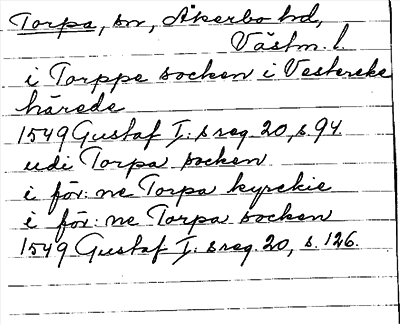 Torpa, sn, Åkerbo hd,
Västm. l.
i Torppe socken i Vestereke
härede
1549 Gustaf I: s reg. 20, s. 94.
udi Torpa socken
i för: ne Torpa kyrckie
i för: ne Torpa socken
1549 Gustaf I: s reg. 20, s. 126.